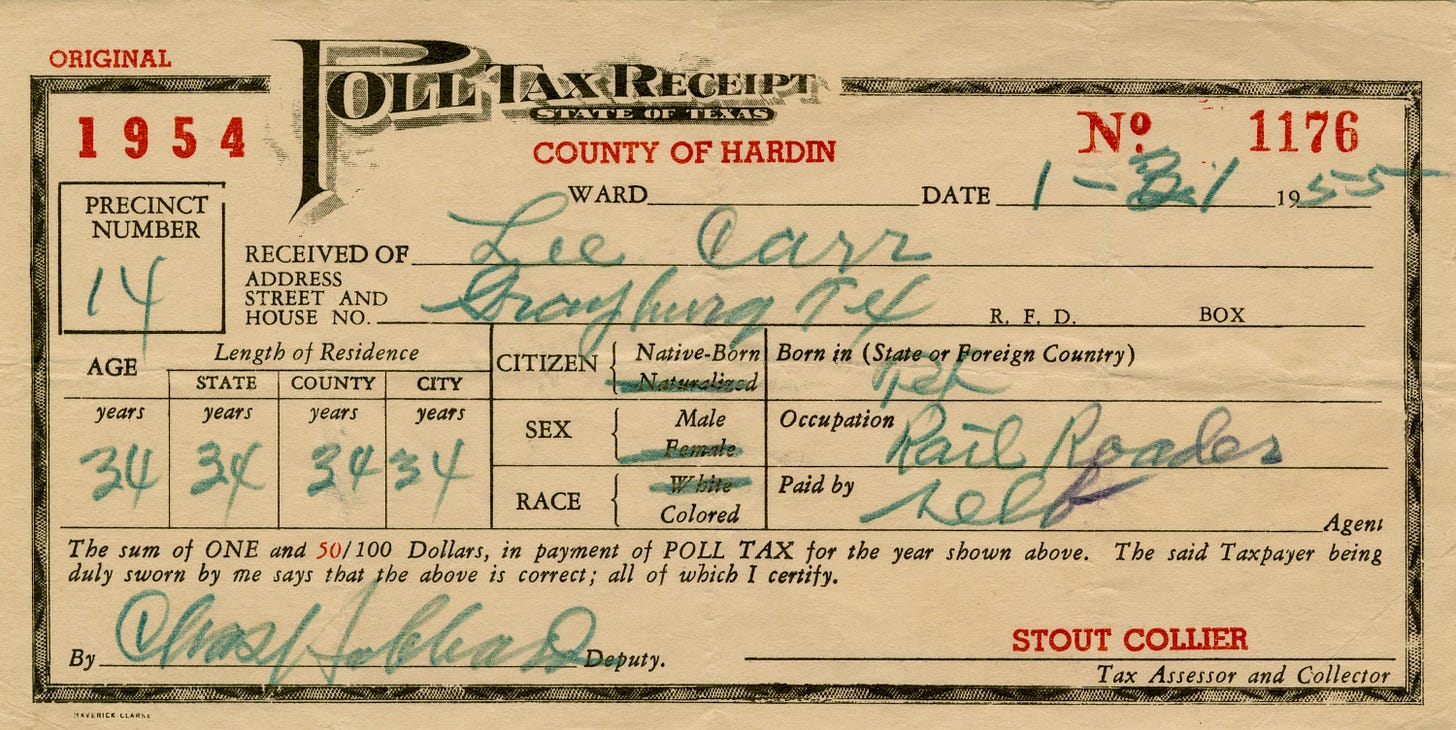 ORIGINAL
POLL TAX RECEIPT
STATE OF TEXAS
1954
COUNTY OF HARDIN
Nº 1176
WARD DATE 1-31 1955
PRECINCT NUMBER
14
RECEIVED OF Lee Carr
ADDRESS
STREET AND
HOUSE NO. Grayburg Tex R. F. D. BOX
AGE
Length of Residence
STATE COUNTY CITY
years years years years
34 34 34 34
CITIZEN { Native-Born
Naturalized
SEX { Male
Female
RACE { White
Colored
Born in (State or Foreign Country)
Tex
Occupation Rail Roader
Paid by self Agent
The sum of ONE and 50/100 Dollars, in payment of POLL TAX for the year shown above. The said Taxpayer being
duly sworn by me says that the above is correct; all of which I certify.
By Chas Deputy.
STOUT COLLIER
Tax Assessor and Collector
MAVERICK-CLARKE